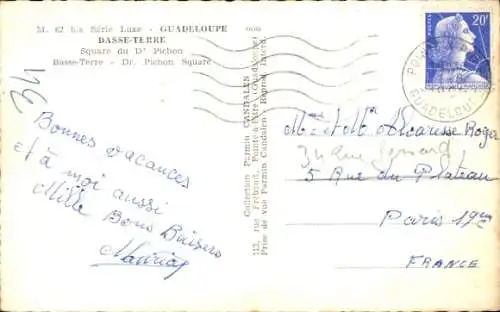 M. 62 bis Série Luxe - GUADELOUPE
BASSE-TERRE
Square du Dr Pichon
Basse-Terre - Dr. Pichon Square
Bonnes vacances
et à moi aussi
Mille Bons Baisers
Collection Parmin CANDALEN
112, rue Frébault, Pointe-à-Pitre (Guadeloupe)
Prise de vue Parmin Candalen - Reprod. Interd.
20F
POSTES
GUADELOUPE
Mme & Mr Roger
34 Rue
5 Rue du Plateau
Paris 19e
FRANCE